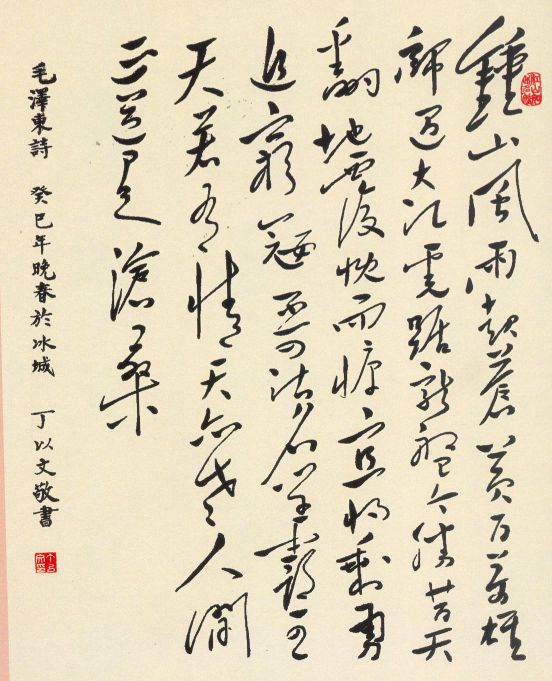 鍾山風雨起蒼黃百萬雄
師過大江虎踞龍盤今勝昔天
翻地覆慨而慷宜將剩勇
追窮寇不可沽名學霸王
天若有情天亦老人間
正道是滄桑
毛澤東詩 癸巳年晚春於冰城 丁以文敬書